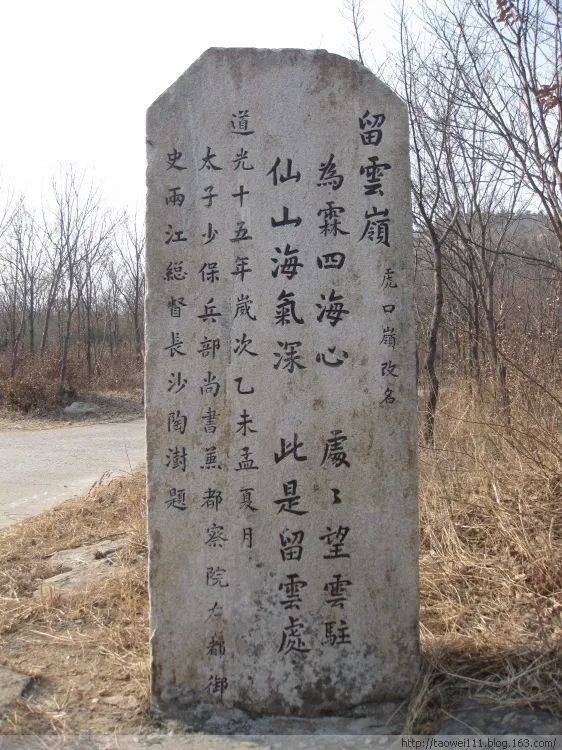 留雲嶺 虎口嶺改名
為霖四海心 處〻望雲駐
仙山海氣深 此是留雲處
道光十五年歲次乙未孟夏月
太子少保兵部尚書兼都察院右都御
史兩江總督長沙陶澍題
http://taowei111.blog.163.com/